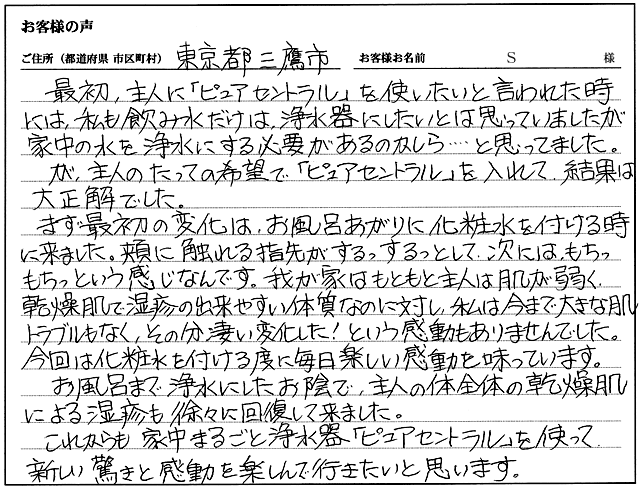 お客様の声
ご住所（都道府県 市区町村） 東京都三鷹市 お客様お名前 S 様
最初、主人に「ピュアセントラル」を使いたいと言われた時
には、私も飲み水だけは、浄水器にしたいとは思っていましたが
家中の水を浄水にする必要があるのかしら…と思ってました。
が、主人のたっての希望で「ピュアセントラル」を入れて、結果は
大正解でした。
まず最初の変化は、お風呂あがりに化粧水を付ける時
に来ました。頬に触れる指先がするっするっとして、次には、もちっ
もちっという感じなんです。我が家はもともと主人は肌が弱く、
乾燥肌で湿疹の出来やすい体質なのに対し、私は今まで大きな肌
トラブルもなく、その分凄い変化した！という感動もありませんでした。
今回は化粧水を付ける度に毎日楽しい感動を味っています。
お風呂まで浄水にしたお陰で、主人の体全体の乾燥肌
による湿疹も徐々に回復して来ました。
これからも家中まるごと浄水器「ピュアセントラル」を使って、
新しい驚きと感動を楽しんで行きたいと思います。